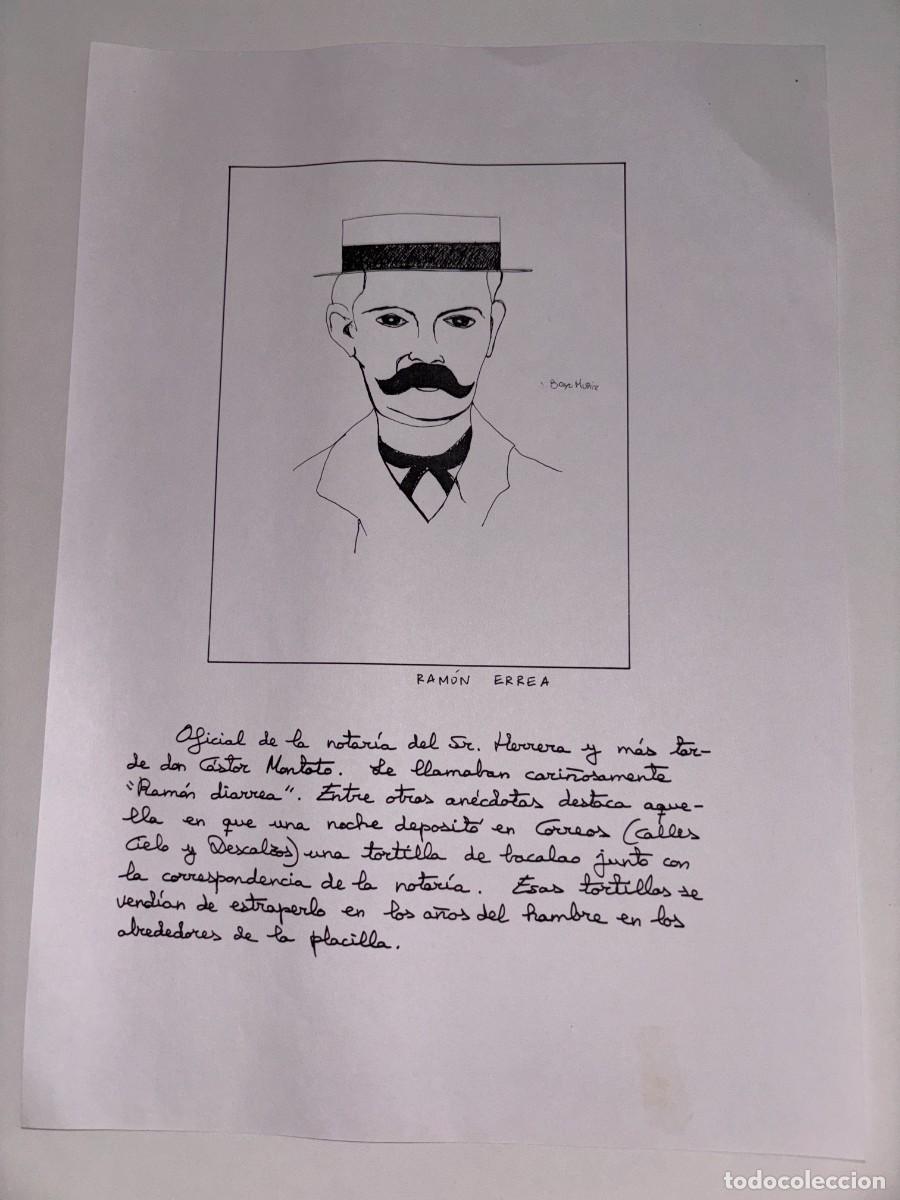 RAMÓN ERREA
Oficial de la notaría del Sr. Herrera y más tar-
de don Cástor Montoto. Le llamaban cariñosamente
"Ramón diarrea". Entre otras anécdotas destaca aque-
lla en que una noche depositó en Correos (calles
Cielo y Descalzos) una tortilla de bacalao junto con
la correspondencia de la notaría. Esas tortillas se
vendían de estraperlo en los años del hambre en los
alrededores de la placilla.
todocoleccion